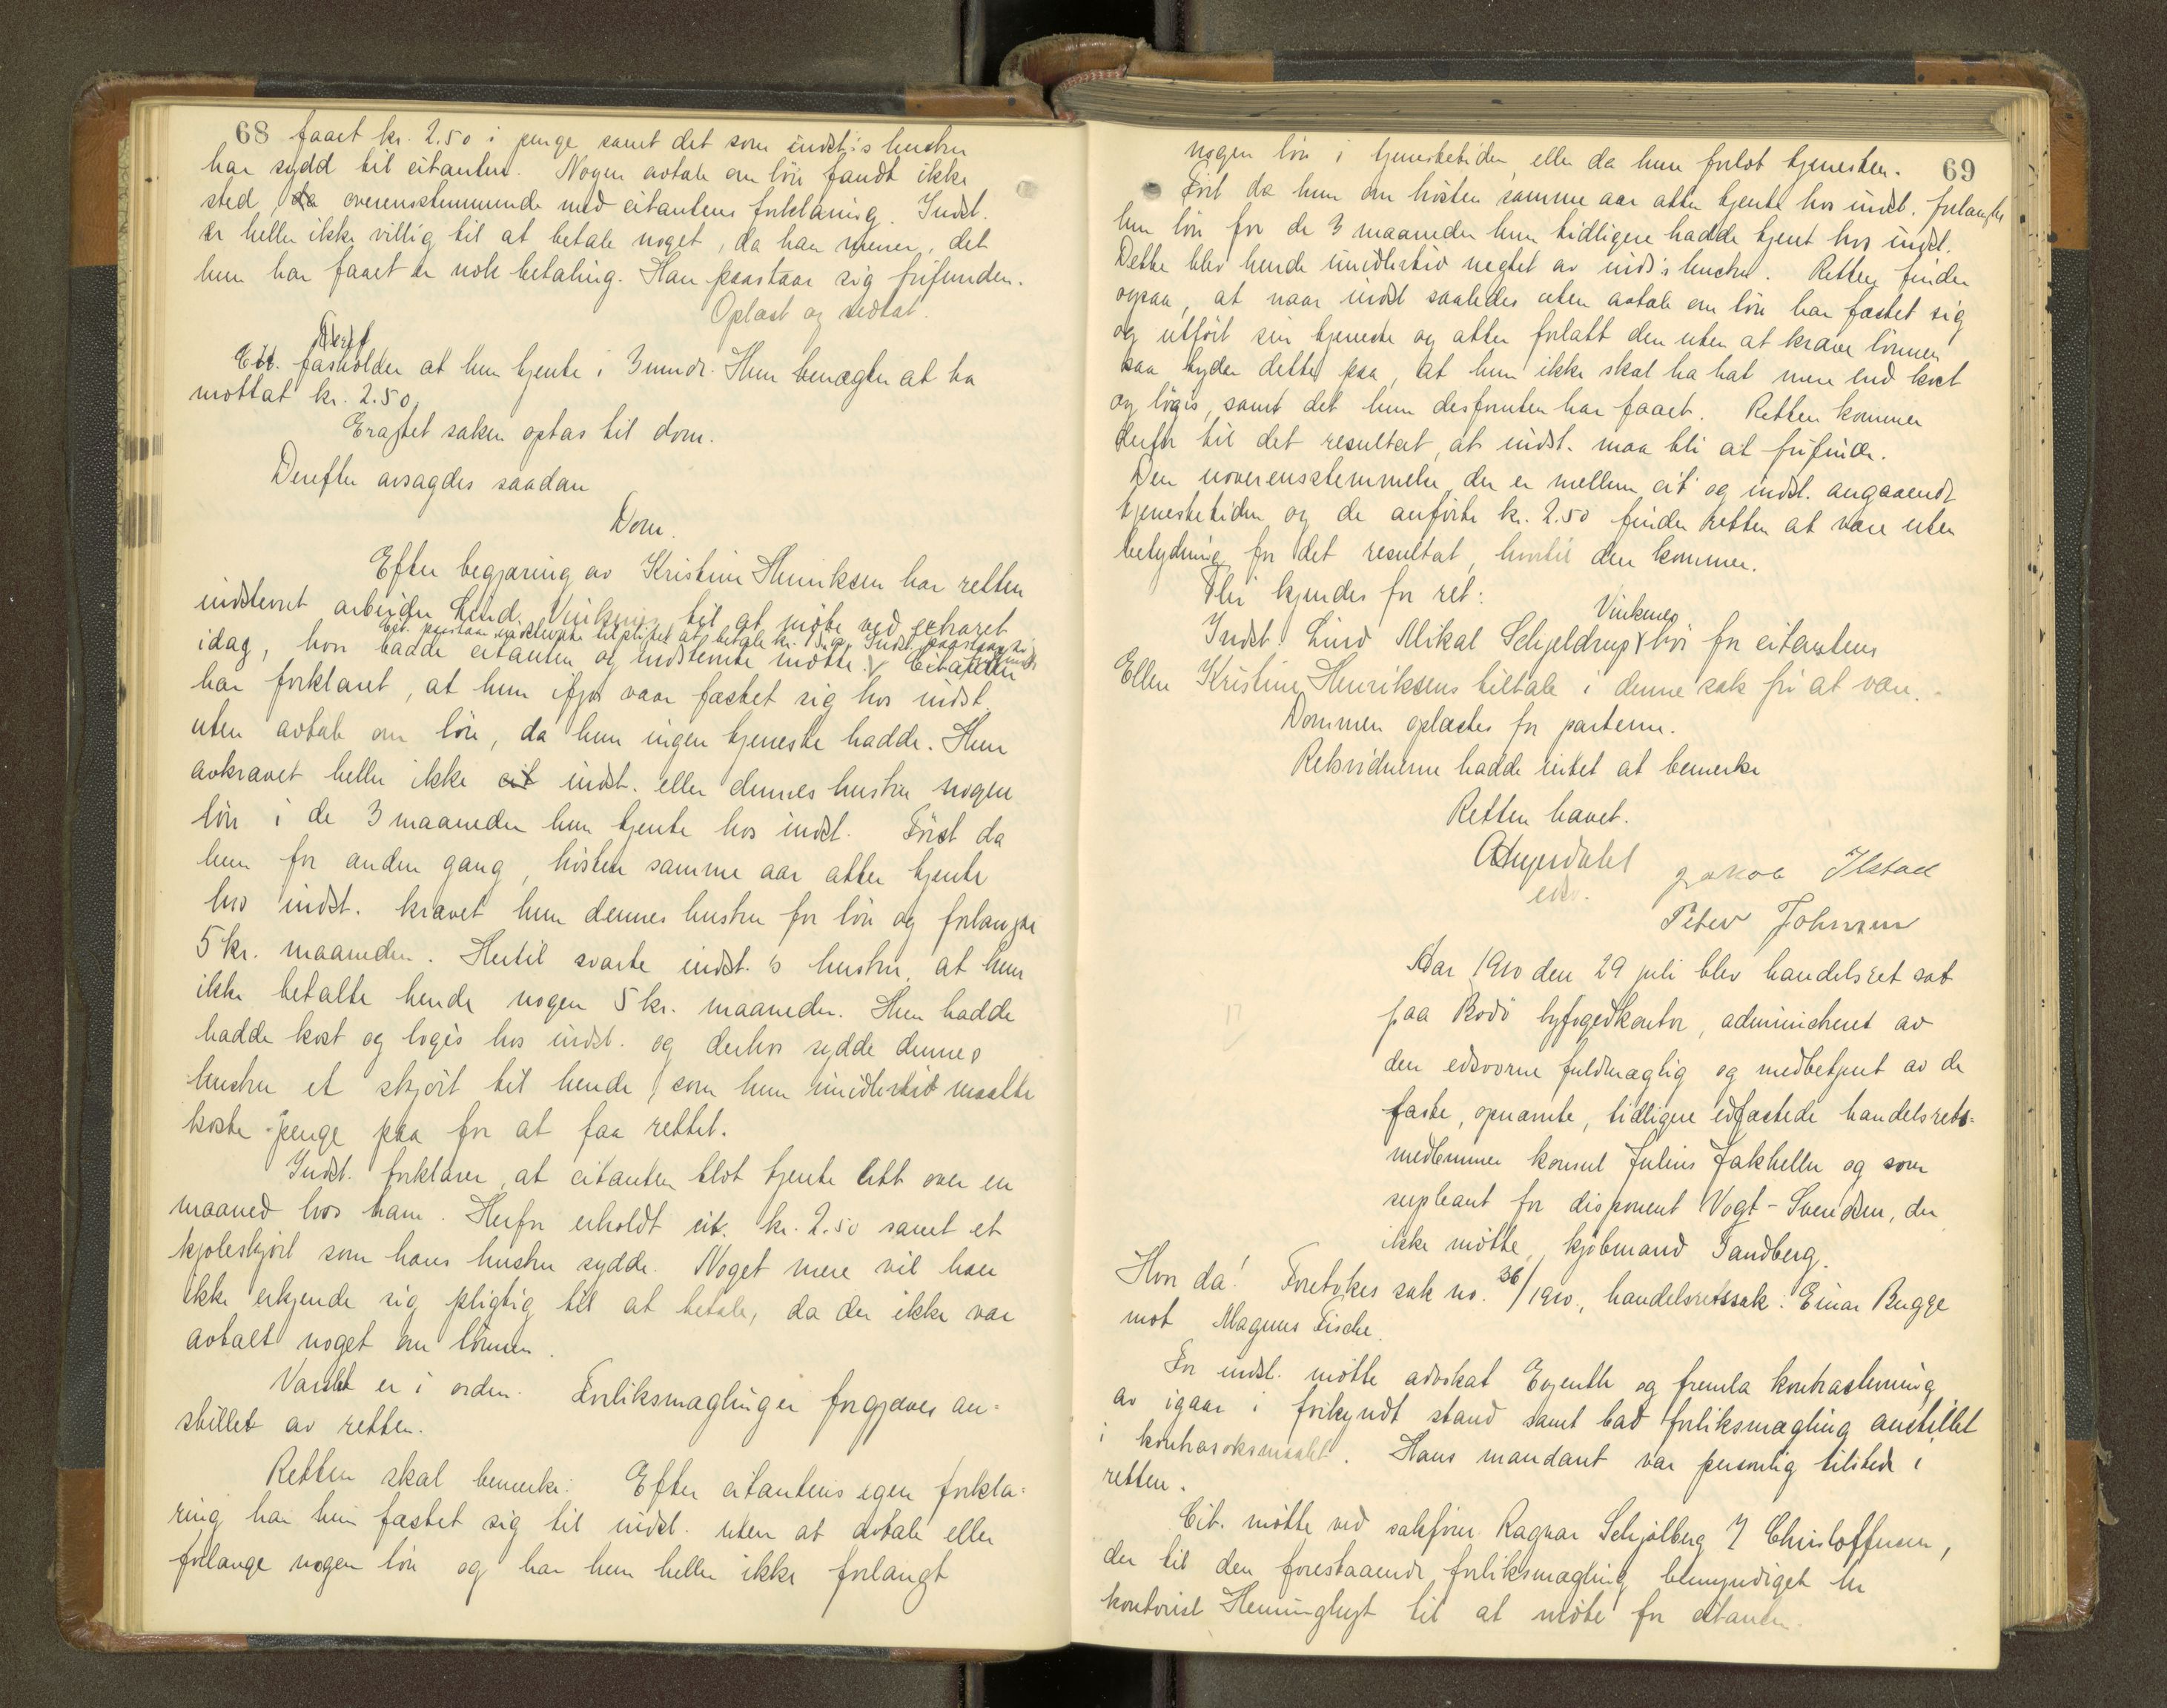 68 faaet kr. 2.50 i penge samt det som indst.s hustru
har sydd til citanten. Nogen avtale om lön fandt ikke
sted, overensstemmende med citantens forklaring. Indst.
er heller ikke villig til at betale noget, da han mener, det
hun har faaet er nok betaling. Han paastaar sig frifunden.
Oplæst og vedtat.
Cit. fastholder at hun tjente i 3 mndr. Hun benægter at ha
mottat kr. 2.50.
Eragtet saken optas til dom.
Derefter avsagdes saadan
Dom.
Efter begjæring av Kristine Henriksen har retten
indstevnt arbeider Lind Vinkenes til at möte ved
idag, hvor baade citanten og indstevnte mötte. Citanten
Cit. paastaar indstevnte tilpligtet at betale kr. Indst. paastaar sig
har forklaret, at hun ifjor vaar fæstet sig hos indst.
uten avtale om lön, da hun ingen tjeneste hadde. Hun
avkrævet heller ikke cit indst. eller dennes hustru nogen
lön i de 3 maaneder hun tjente hos indst. Först da
hun for anden gang, hösten samme aar atter tjente
hos indst. krævet hun dennes hustru for lön og forlangte
5 kr. maaneden. Hertil svarte indst.s hustru, at hun
ikke betalte hende nogen 5 kr. maaneden. Hun hadde
hadde kost og logis hos indst. og derhos sydde dennes
hustru et skjört til hende, som hun imidlertid maatte
koste penge paa for at faa rettet.
Indst. forklarer, at citanten blot tjente litt over en
maaned hos ham. Herfor erholdt cit. kr. 2.50 samt et
kjoleskjört som hans hustru sydde. Noget mere vil han
ikke erkjende sig pligtig til at betale, da der ikke var
avtalt noget om lönnen.
Varslet er i orden. Forliksmægling er forgjæves an-
stillet av retten.
Retten skal bemerke: Efter citantens egen forkla-
ring har hun fæstet sig til indst. uten at avtale eller
forlange nogen lön og har hun heller ikke forlangt
69
nogen lön i tjenestetiden eller da hun forlot tjenesten.
Först da hun om hösten samme aar atter tjente hos indst. forlangte
hun lön for de 3 maaneder hun tidligere hadde tjent hos indst.
Dette blev hende imidlertid negtet av indst.s hustru. Retten finder
ogsaa, at naar indst saaledes uten avtale om lön har fæstet sig
og utfört sin tjeneste og atter forlatt den uten at kræve lönnen
saa tyder dette paa, at hun ikke skal ha hat mere end kost
og logis, samt det hun desforuten har faaet. Retten kommer
derfor til det resultat, at indst. maa bli at frifinde.
Den uoverensstemmelse der er mellem cit og indst. angaaende
tjenestetiden og de anförte kr. 2.50 finder retten at være uten
betydning for det resultat, hvortil den kommer.
Thi kjendes for ret:
Vinkenes
Indst. Lind Mikal Schjeldrup bör for citantens
Ellen Kristine Henriksens tiltale i denne sak fri at være.
Dommen oplæstes for parterne.
Retsvidnerne hadde intet at bemerke
Retten hævet.
edsv.
Jakob Ilstad
Peter Johnsen
Aar 1910 den 29 juli blev handelsret sat
paa Bodö byfogedkontor, administreret av
den edsvorne fuldmægtig og medbetjent av de
faste, opnævnte, tidligere edfæstede handelsrets-
medlemmer konsul Julius Jakhelln og som
supleant for disponent Vogt-Svendsen, der
ikke mötte, kjöbmand Sandberg.
Hvor da! Foretokes sak no. 36/1910, handelsretssak: Einar Bugge
mot Magnus Fische.
For indst. mötte advokat Evjenth og fremla kontrastevning
av igaar i forkyndt stand samt bad forliksmægling anstillet
i kontrasöksmaalet. Hans mandant var personlig tilstede i
retten.
Cit. mötte ved sakförer Ragnar Schjölberg Christoffersen,
der til den forestaaende forliksmægling bemyndiget hr
kontorist Henninghuyt til at möte for citanten